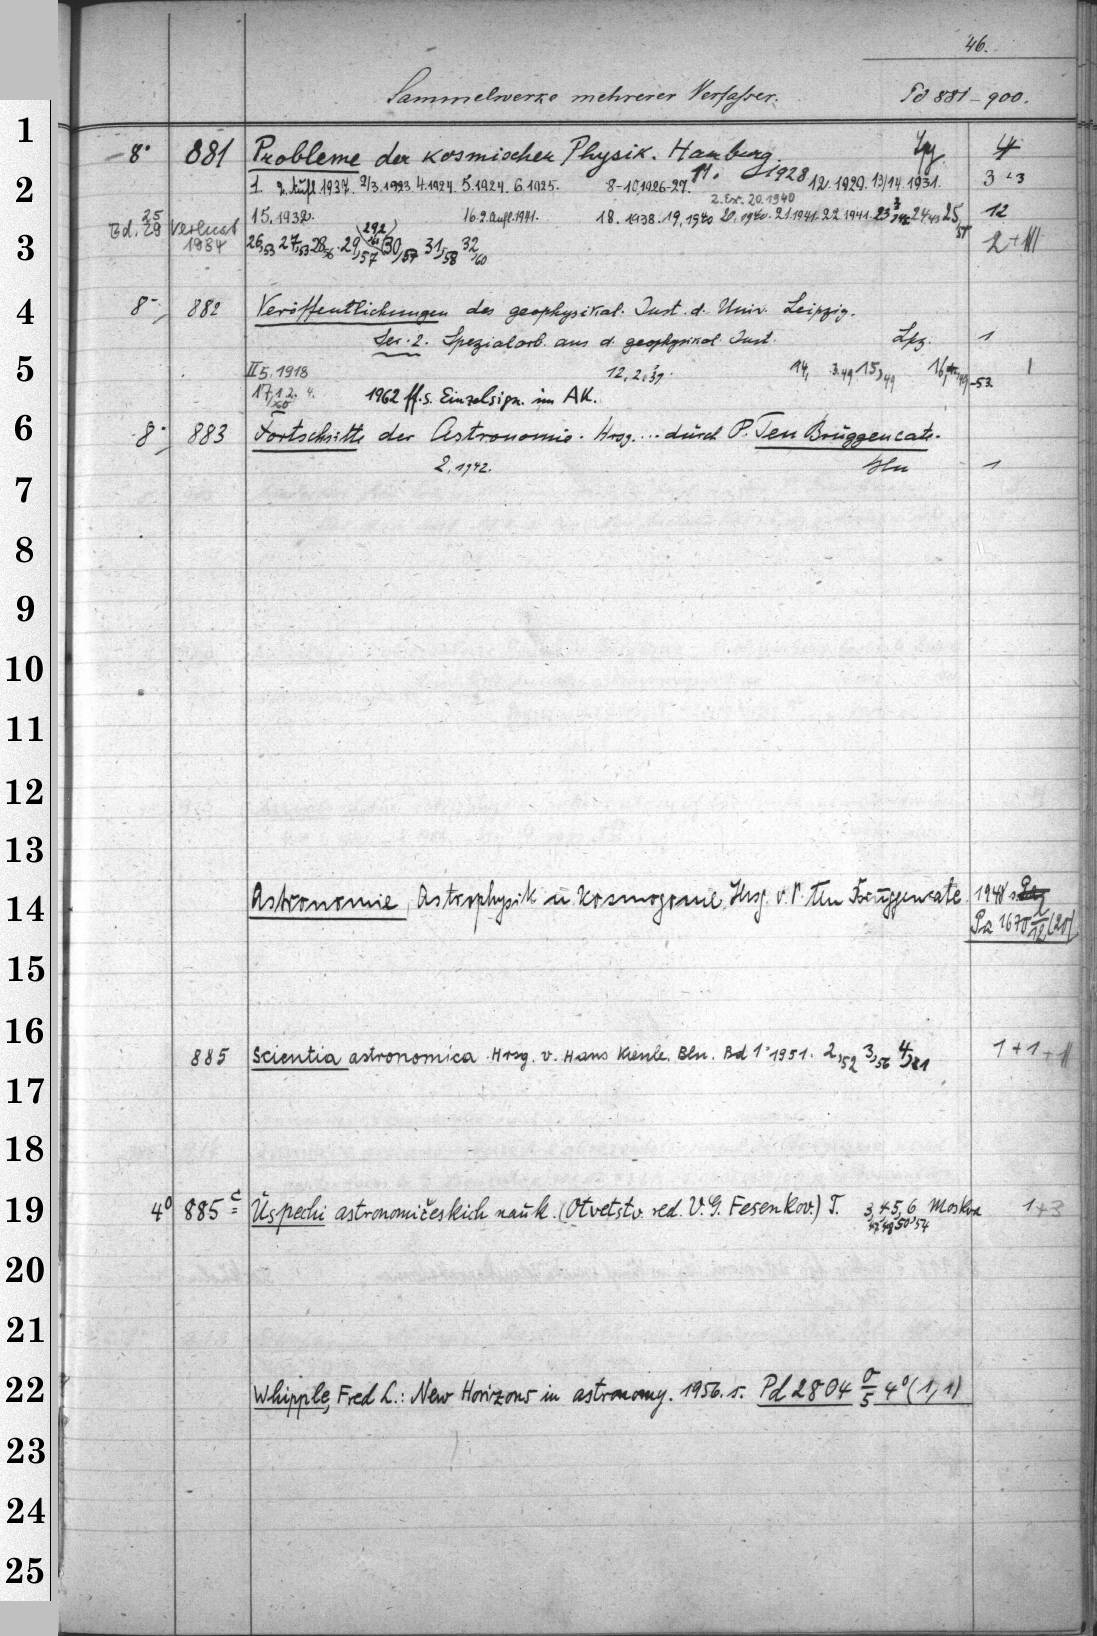 46.
Sammelwerke mehrerer Verfasser. Pd 881-900.
1
8° 881 Probleme der kosmischen Physik. Hamburg. Lpz 4
2 1. 2. Aufl 1937. 2/3.1923. 4.1924. 5.1924. 6.1925. 8-10,1926-27. 11. 1928 12. 1929. 13/14. 1931. 3 + 3
2. Ex. 20.1940
25 15.1932. 16.2.Aufl.1941. 18. 1938. 19,1940 20.1940. 21.1941. 22.1941. 23 24 25, 12
Bd. 29 Verlust 1934
3 26,53 27,53 28,56 29,57 (29,2) 30,57 31,58 32,60 2 + III
4 8° 882 Veröffentlichungen des geophysikal. Inst. d. Univ. Leipzig.
Ser. 2. Spezialarb. aus d. geophysikal. Inst. Lpz. 1
5 II 5, 1918 12, 2, 39. 14, 3.49 15,49 16, -53. 1
17, 1 2. 4. 1962 ff. s. Einzelsign. im AK.
6 8° 883 Fortschritte der Astronomie. Hrsg. ... durch P. Ten Bruggencate.
2, 1942. Bln 1
7
8
9
10
11
12
13
14 Astronomie, Astrophysik u. Kosmogonie. Hrsg. v. P. ten Bruggencate 1948 s.
Pa 1670 /12 (20)
15
16
885 Scientia astronomica. Hrsg. v. Hans Kienle. Bln. Bd 1. 1951. 2,52 3,56 4, 1 + 1 + II
17
18
19 4° 885 c Uspechi astronomičeskich nauk. (Otvetstv. red. V. G. Fesenkov.) T. 3, 4 5, 6 Moskva 1+3
47 48 50 54
20
21
22 Whipple, Fred L.: New Horizons in astronomy. 1956. s. Pd 2804 0/5 4° (1,1)
23
24
25